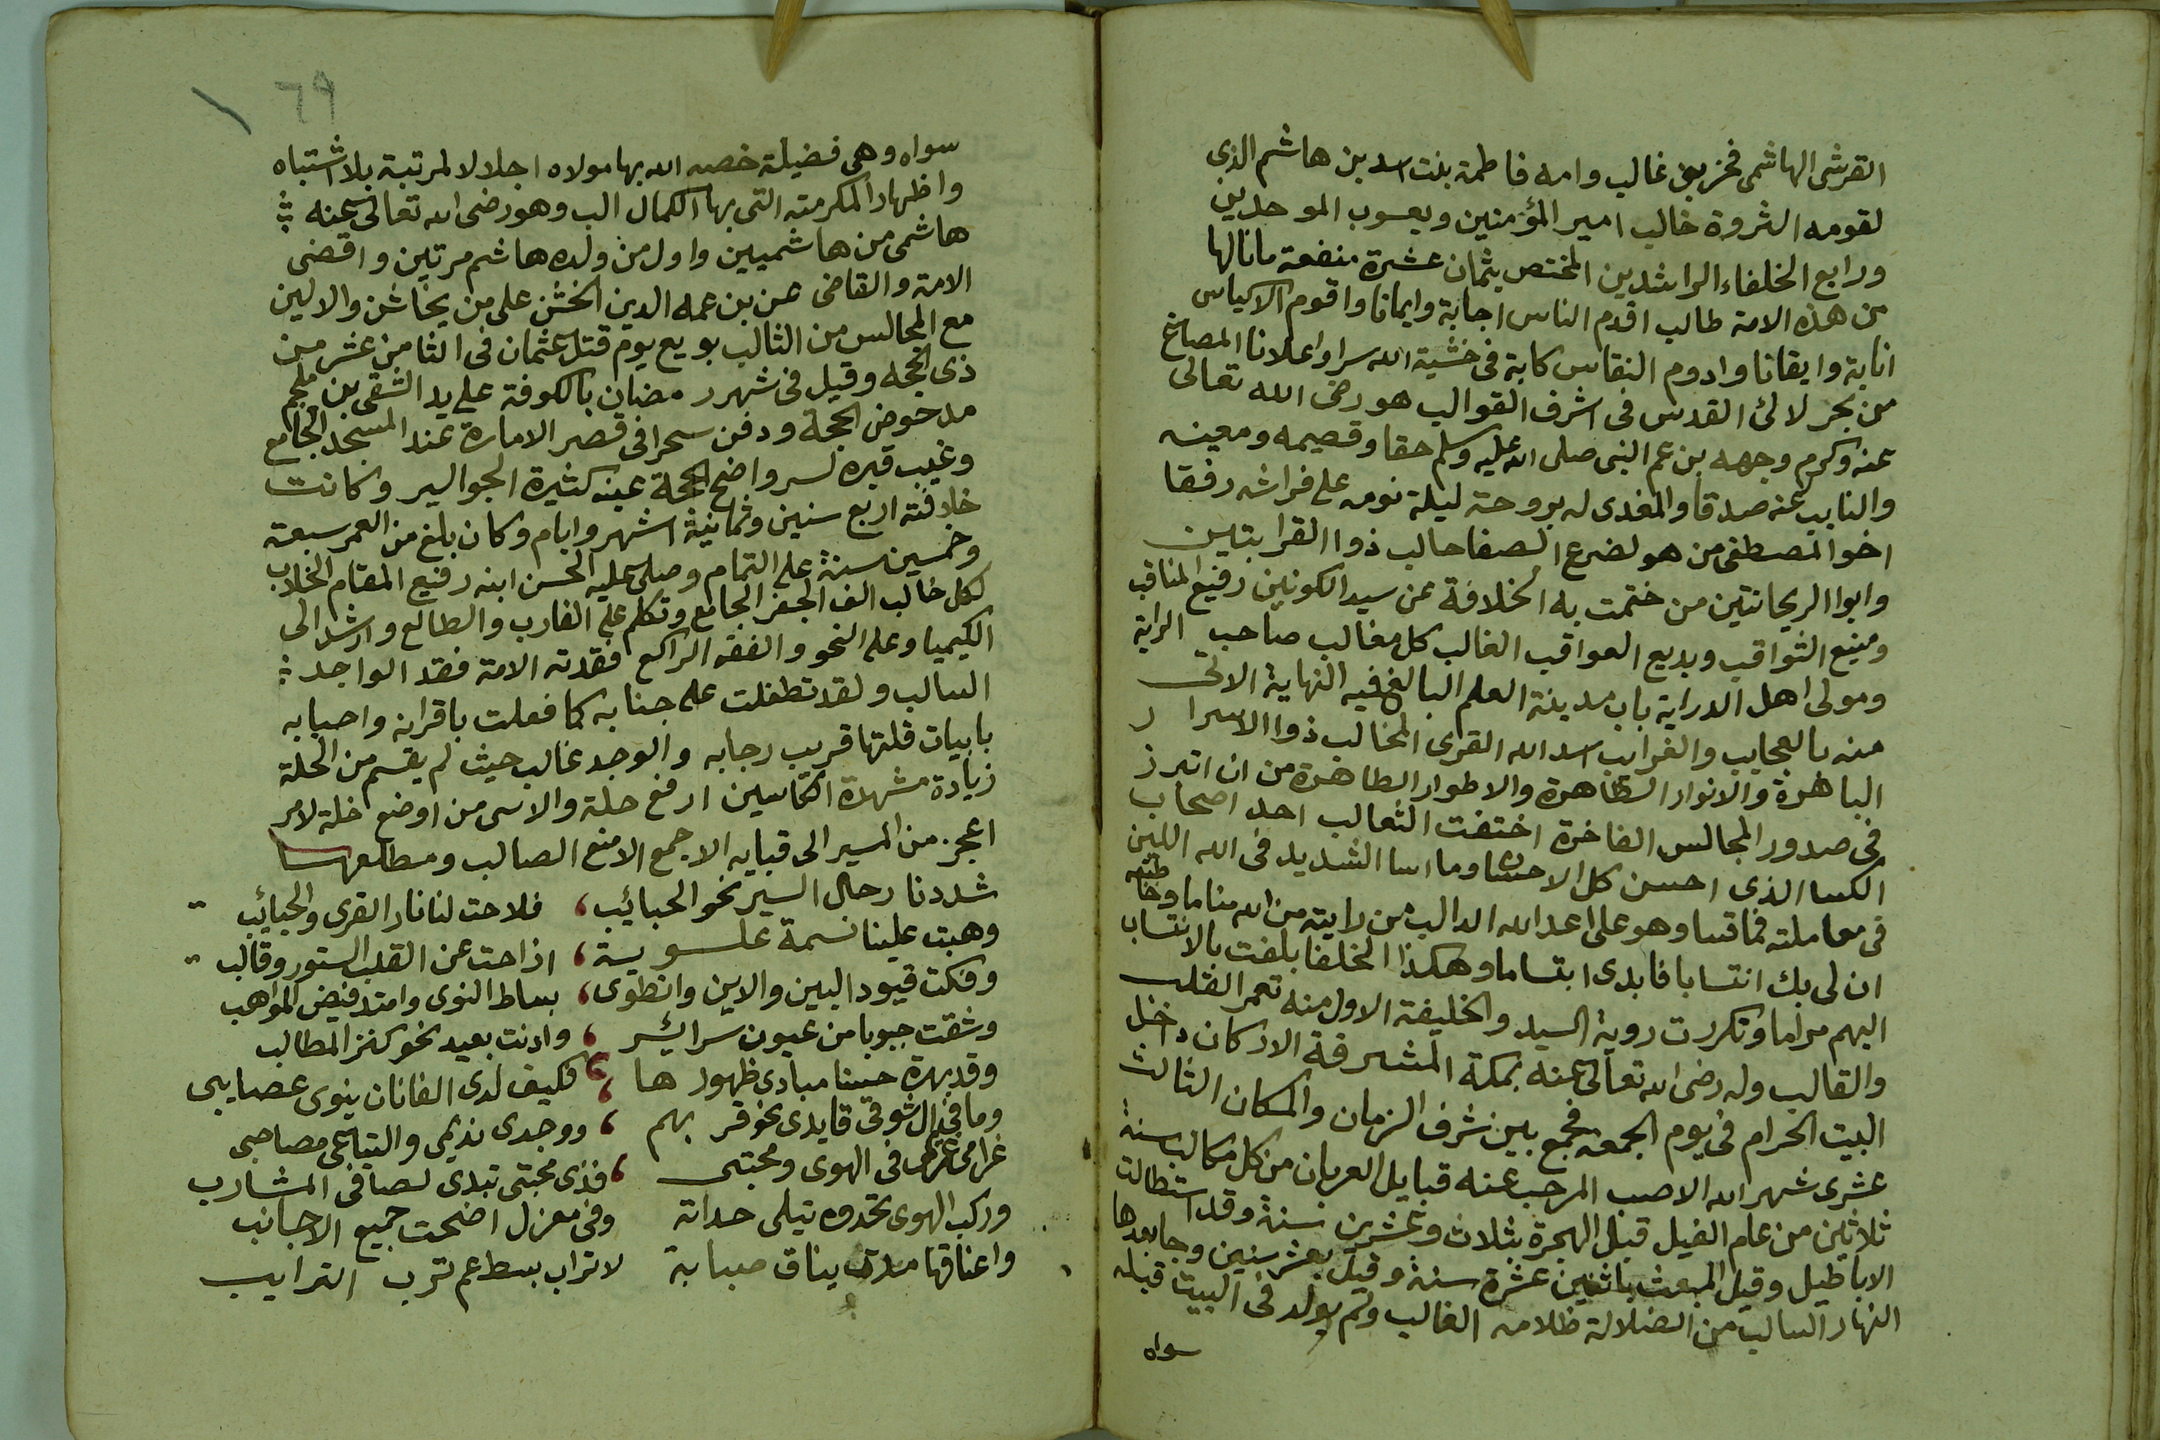 القرشى الهاشمى فخر بنى غالب وامه فاطمة بنت اسد بن هاشم الذى
لقومه الثروة غالب امير المؤمنين ويعسوب الموحدين
ورابع الخلفاء الراشدين المختص بثمان عشرة منفعة مانالها
من هذه الامة طالب اقدم الناس اجابة وايمانا واقوم الاكياس
انابة وايقانا وادوم النقاس كابة فى خشية الله سرا واعلانا المصاغ
من بحر لالئ القدس فى اشرف القوالب هو رضى الله تعالى
عنه وكرم وجهه بن عم النبى صلى الله عليه وسلم حقا وقصيمه ومعينه
والنايب عنه صدقا والمفدى له بروحة ليلة نومه على فراشه رفقا
اخو المصطفى من هو لضرع الصفا حالب ذوا القرابتين
وابوا الريحانتين من ختمت به الخلافة عن سيد الكونين رفيع المناقب
ومنيع الثواقب وبديع العواقب الغالب كل مغالب صاحب الراية
ومولى اهل الدراية باب مدينة العلم البالغ فيه النهاية الاتى
منه بالعجايب والغرايب اسد الله القوى المخالب ذوا الاسرار
الباهرة والانوار الظاهرة والاطوار الطاهرة من ان اتبرز
فى صدور المجالس الفاخرة اختفت الثعالب احد اصحاب
الكسا الذى احسن كل الاحسان وما اسا الشديد فى الله اللين
فى معاملته فما قسا وهو على اعدا الله الدالب من رايته من الله مناما وخاطبته
ان لى بك انتسابا فابدى ابتساما وهكذا الخلفا بلغت بالانتساب
اليهم مراما وتكررت روية السيد والخليفة الاول منه تعمر القلب
والقالب وله رضى الله تعالى عنه بمكة المشرفة الاركان داخل
البيت الحرام فى يوم الجمعة فجمع بين شرف الزمان والمكان الثالث
عشرى شهر الله الاصب المرحب عنه قبايل العربان من كل مكالب سنة
ثلاثين من عام الفيل قبل الهجرة بثلاث وعشرين سنة وقد استطالت
الاباطيل وقبل المبعث باثنين عشرة سنة وقيل بعشر سنين وجا بعدها
النهار السالب من الضلالة ظلامه الغالب ولم يولد فى البيت قبله
سواه
٦٩
سواه وهى فضيلة خصه الله بها مولاه اجلالا لمرتبة بلا اشتباه
واظهار المكرمته التى بها الكمال الب وهو رضى الله تعالى عنه
هاشمى من هاشميين واول من ولده هاشم مرتين واقضى
الامة والقاضى عن بن عمه الدين الخشن على من يخاشن والالين
مع المجالس من الثالب بويع يوم قتل عثمان فى الثامن عشر من
ذى الحجه وقيل فى شهر رمضان بالكوفة على يد الشقى بن ملجم
مدحوض الحجة ودفن سحرا فى قصر الامارة عند المسجد الجامع
وغيب قبره لسر واضح الحجة عينه كثيرة الجوالير وكانت
خلافته اربع سنين وثمانية اشهر وايام وكان بلغ من العمر سبعة
وخمسين سنة على التمام وصلى عليه الحسن ابنه رفيع المقام الخلاب
لكل خالب الف الجفر الجامع وتكلم على الغارب والطالع وارشد الى
الكيميا وعلم النحو والفقه الراكع فقدته الامة فقد الواجد
السالب ولقد تطفلت على جنابه كما فعلت باقرانه واحبابه
بابيات قلتها قريب رجابه والوجد غالب حيث لم يقسم من الحلة
زيادة مشهدة اكاسين ارفع حلة والاسى من اوضع خلة لامر
اعجز من المسير الى قبابه الاجمع الامنع الصالب ومطلعها
شددنا رحال السير نحو الحبائب، فلاحت لنا نار القرى والحبائب
وهبت علينا نسمة علسوية، اذاحت عن القلب الستور وقالب
وفكت قيود البين والاين وانطوى، بساط النوى وامتد فيض المواهب
وشقت جيوبا من عيون سرائر، وادنت بعيد نحو كنز المطالب
وقد بهرة حسنا مبادى ظهورها، فكيف لدى الفانان ينوى عصايبى
وما فى ال شوقى قايدى نحو قربهم، ووجدى نديمى والتياعى مصاحبى
غرامى غريمى فى الهوى ومحبتى، فذى محبتى تبدى لصافى المشارب
وركب الهوى تحدوه تيلى حداتة وفى معزل اضحت جميع الاجانب
واعناقها مدت يناق صبابة لاتراب بسط عم ترب الترايب